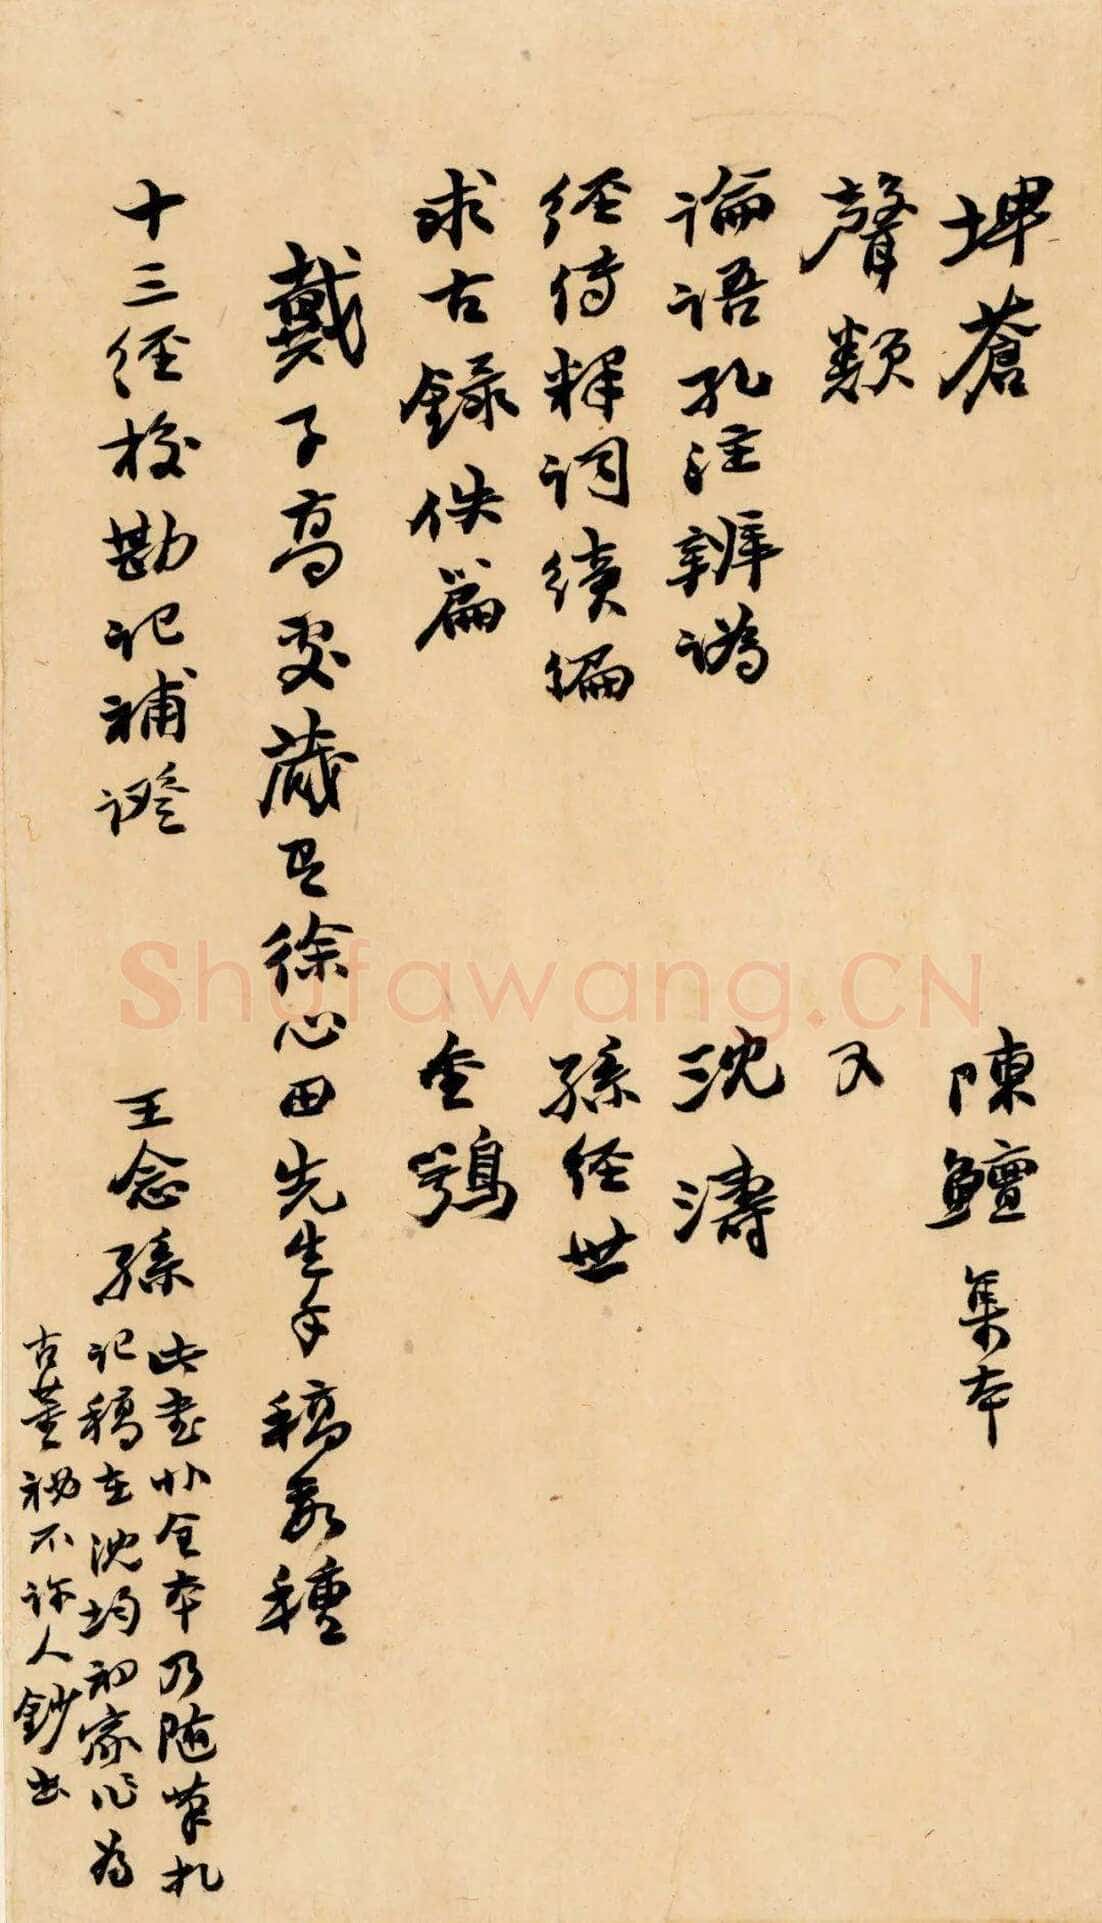 埤蒼 陳鱣集本
聲類 又
論語孔注辨譌 沈濤
經傳釋詞續編 孫经世
求古錄佚篇 金鶚
戴子高處藏臣徐心田先生手稿數種
十三經校勘记補證 王念孫
此書非全本乃随筆札
记稿在沈均初家作為
古董祕不許人鈔出
Shufawang.CN